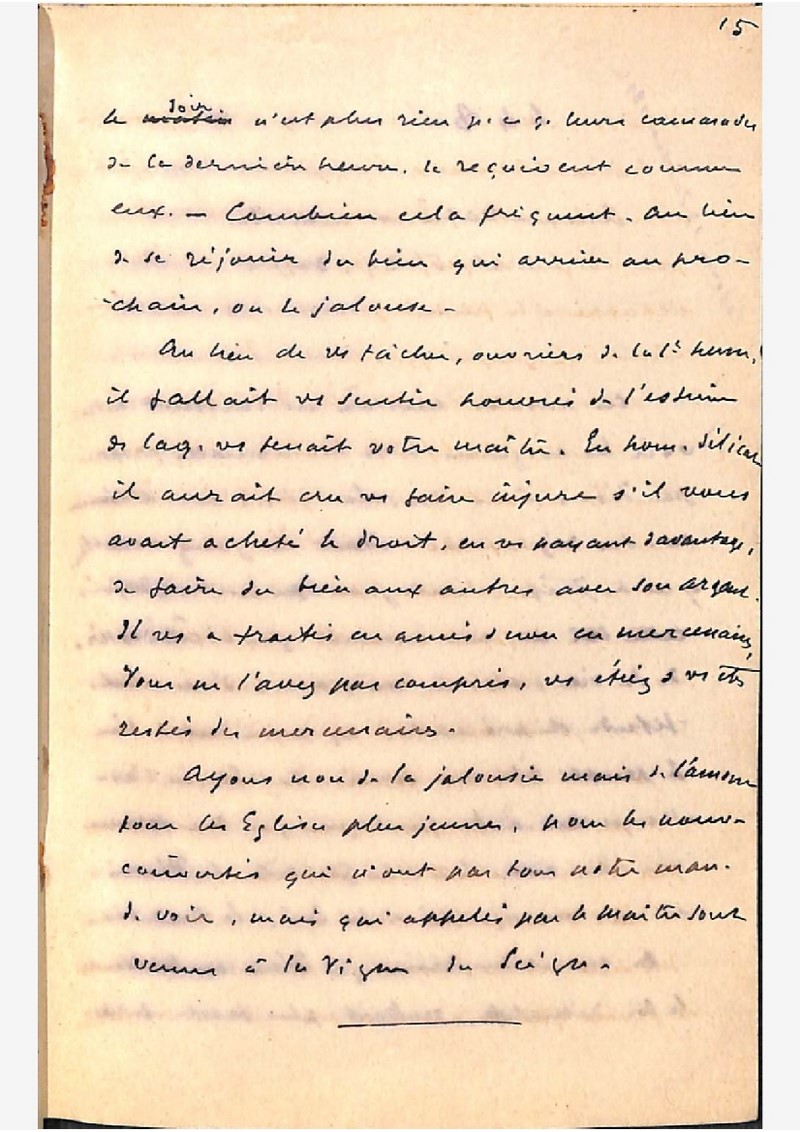 15
soir
le matin n'est plus rien p. c. q. leurs camarades
de la dernière heure, le reçoivent comme
eux. — Combien cela fréquent. Au lieu
de se réjouir du bien qui arrive au pro-
chain, on le jalouse —
Au lieu de vs fâcher, ouvriers de la 1e heure,
il fallait vs sentir honorés de l'estime
ds laq. vs tenait votre maître. En hom. délicat
il aurait cru vs faire injure s'il vous
avait acheté le droit, en vs payant davantage,
de faire du bien aux autres avec son argent.
Il vs a traités en amis & non en mercenaires,
Vous ne l'avez pas compris, vs étiez & vs êts
restés des mercenaires.
Ayons non de la jalousie mais de l'amour
pour les Eglises plus jeunes, pour les nouv-
convertis qui n'ont pas tous notre man.
de voir, mais qui appelés par le Maître sont
venus à la Vigne du Seigr.